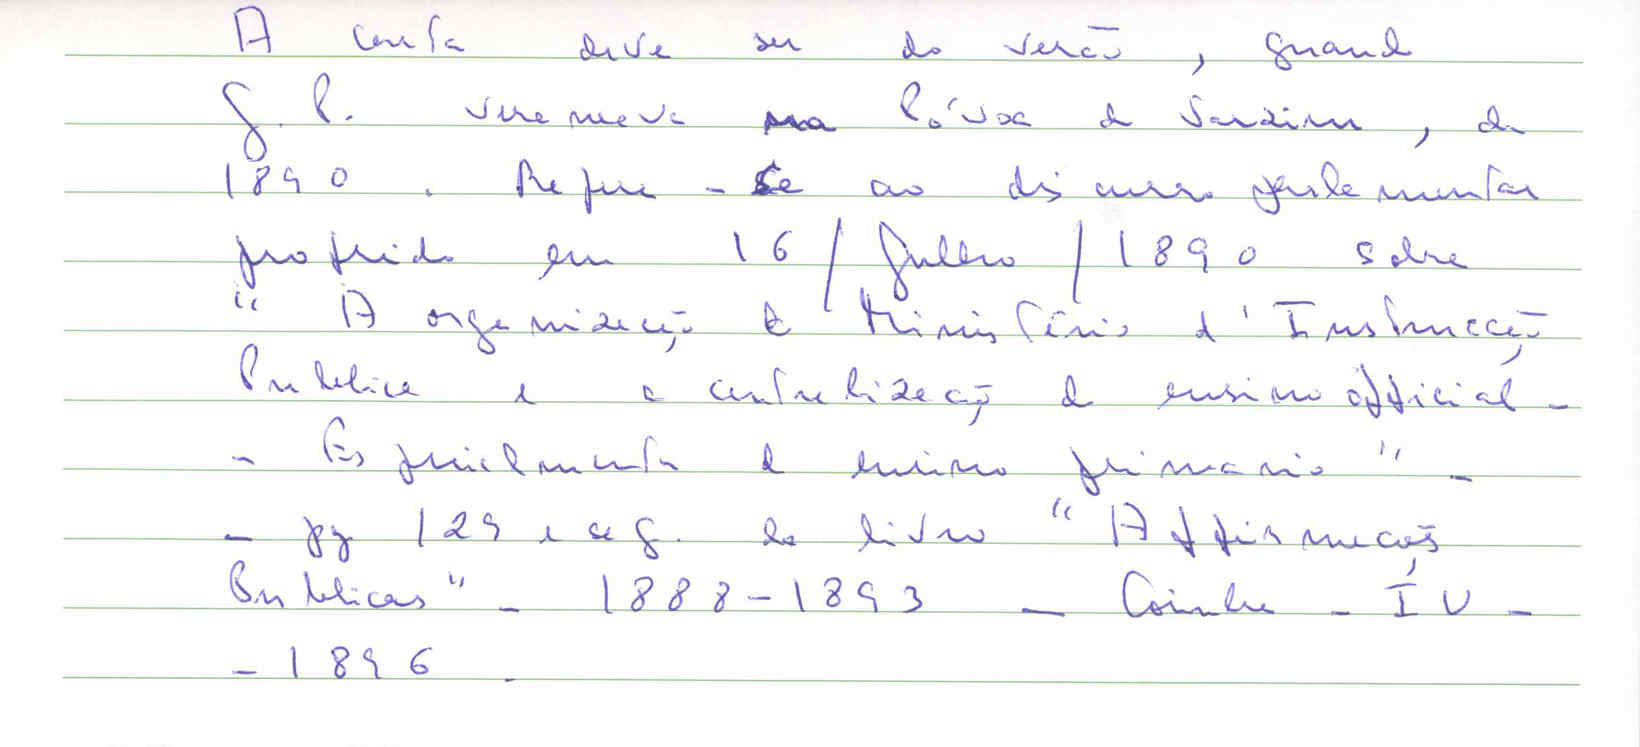 A carta deve ser do verão, quando
J. P. veraneava na Póvoa de Varzim, de
1890. Refere-se ao discurso parlamentar
proferido em 16/Julho/1890 sobre
"A organização do Ministério d'Instrucção
Publica e a centralização do ensino official -
- Especialmente o ensino primario" -
- pg 129 e seg. do livro "Affirmações
Publicas" - 1888-1893 - Coimbra - IV -
- 1896.